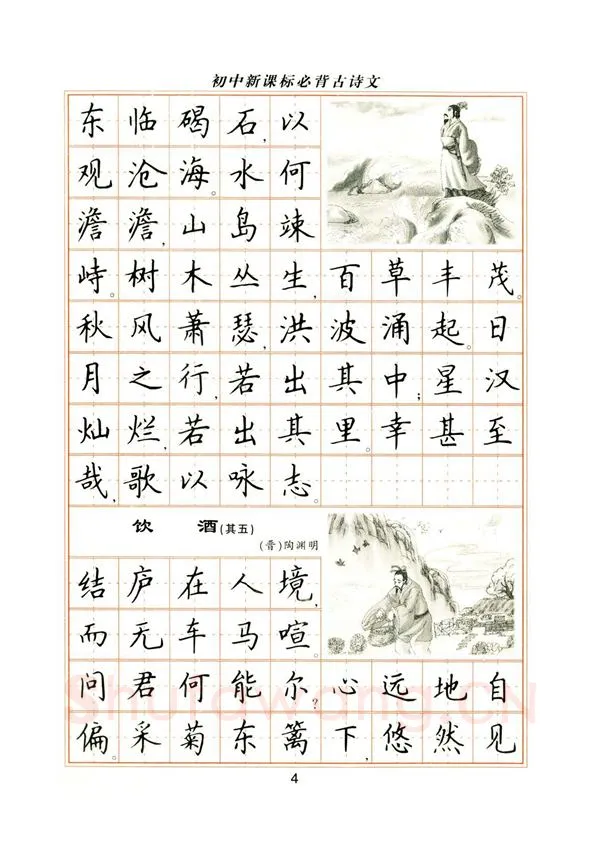 初中新课标必背古诗文
东临碣石,以
观沧海。水何
澹澹,山岛竦
峙。树木丛生,百草丰茂。
秋风萧瑟,洪波涌起。日
月之行,若出其中;星汉
灿烂,若出其里。幸甚至
哉,歌以咏志。
饮酒(其五)
(晋)陶渊明
结庐在人境,
而无车马喧。
问君何能尔?心远地自
偏。采菊东篱下,悠然见
4